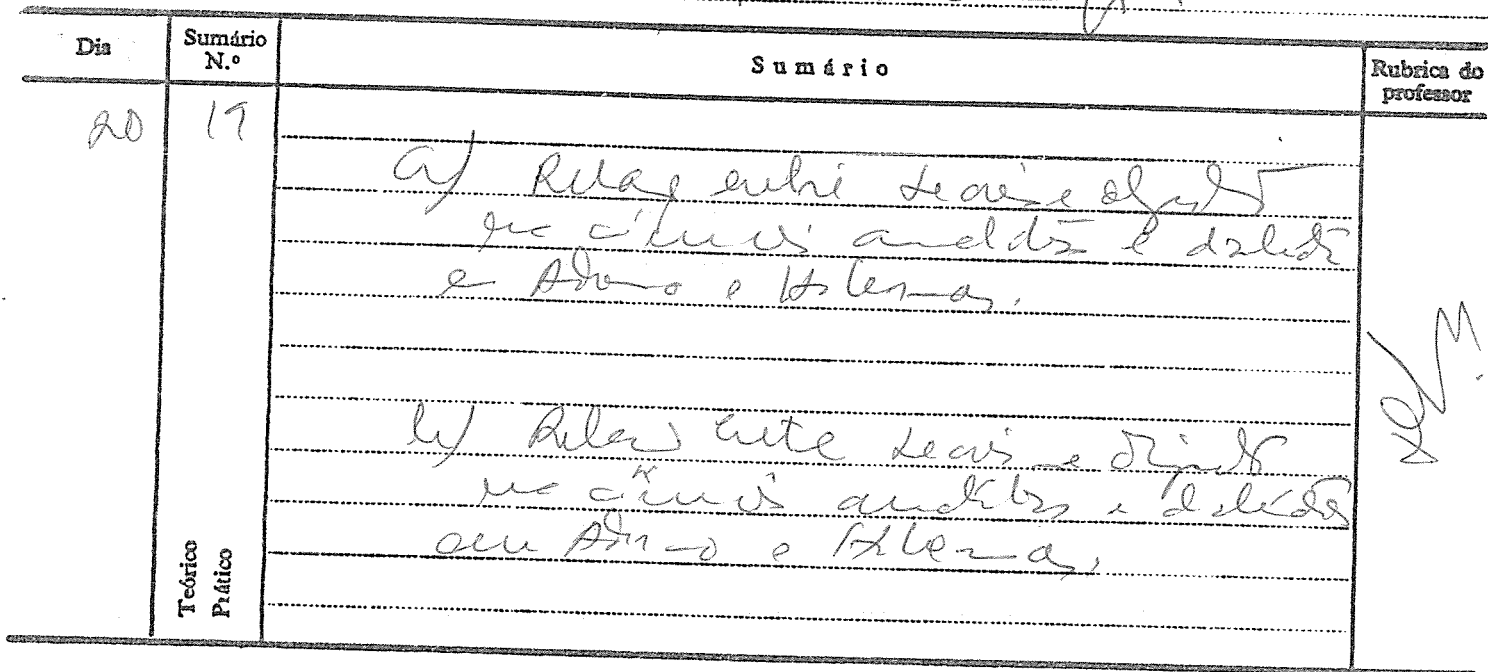 Dia
Sumário
N.º
Sumário
Rubrica do
professor
20
19
a) Relação entre teoria e objecto
nas ciências analíticas e dialécticas
em Adorno e Habermas.
b) Relação entre teoria e objecto
nas ciências analíticas e dialécticas
em Adorno e Habermas.
Teórico
Prático